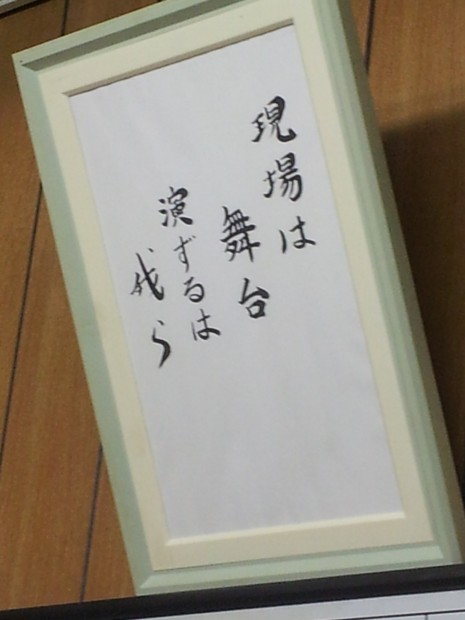 現場は
舞台
演ずるは
我ら